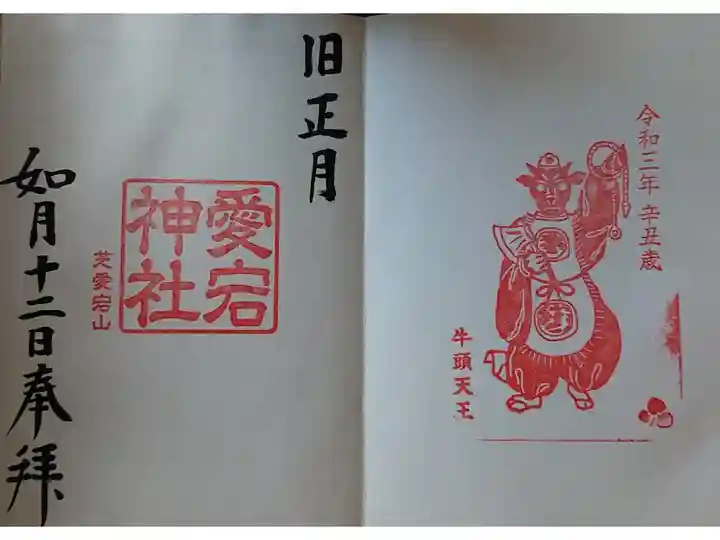 令和三年 辛丑歳
牛頭天王
旧正月
愛宕
神社
芝愛宕山
如月十二日奉拝